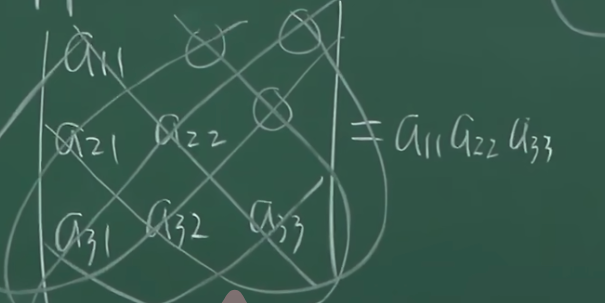 | a₁₁ 0 0 |
| a₂₁ a₂₂ 0 | = a₁₁ a₂₂ a₃₃
| a₃₁ a₃₂ a₃₃ |